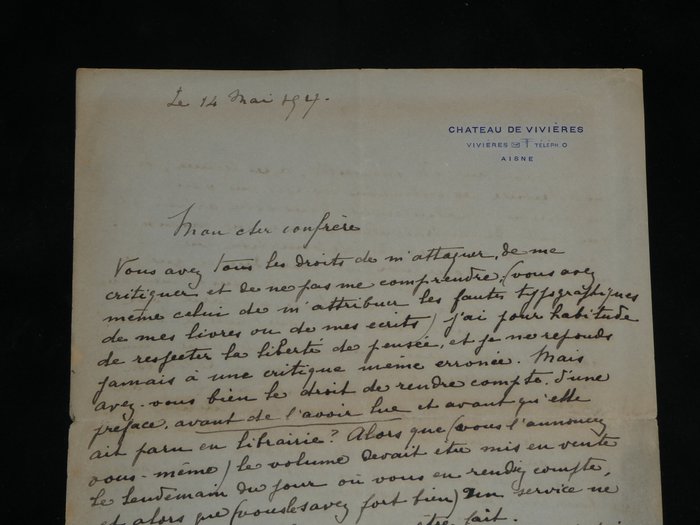 Le 14 Mai 1927.
CHATEAU DE VIVIÈRES
VIVIERES TÉLÉPH O
AISNE
Mon cher confrère
Vous avez tous les droits de m'attaquer, de me
critiquer et de ne pas me comprendre, (vous avez
même celui de m'attribuer les fautes typographiques
de mes livres ou de mes ecrits) j'ai pour habitude
de respecter la liberté de pensée, et je ne reponds
jamais à une critique même erronée. Mais
avez-vous bien le droit de rendre compte d'une
préface, avant de l'avoir lue et avant qu'elle
ait paru en librairie? Alors que (vous l'annoncez
vous-même) le volume devait etre mis en vente
le lendemain du jour où vous en rendez compte,
et alors que (vous savez fort bien) un service ne
être fait.